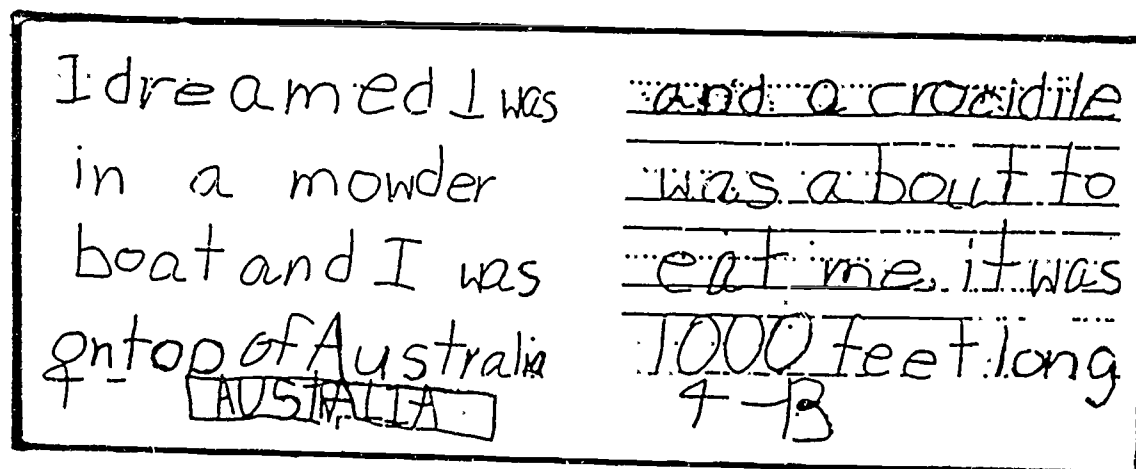 I dreamed I was
in a mowder
boat and I was
on top of Australia
AUSTRALIA
and a crocidile
was a bout to
eat me. it was
1000 feet long
4-B